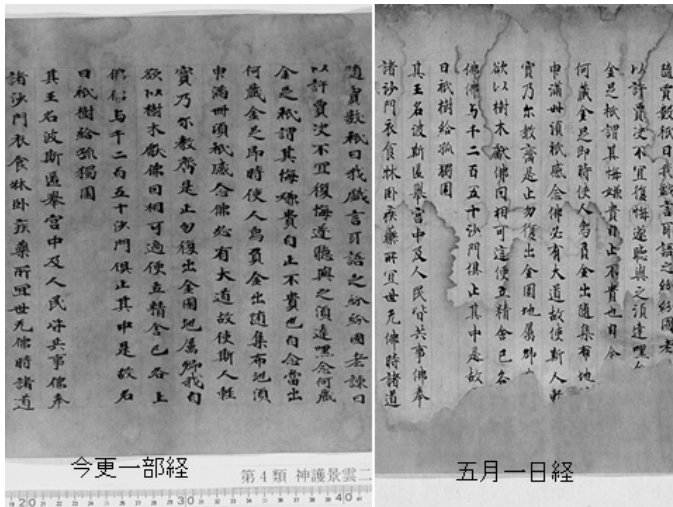 隨貢數祇曰我戲言耳語之紛紛國老諫曰
以許賣決不宜復悔遂聽與之須達嘿念何藏
金足祇謂其悔嫌貴自止不貴也自念當出
何藏金足即時使人為負金出隨集布地須
申滿卌頃祇感念佛必有大道故使斯人輕
寶乃尓教齊是止勿復出金園地屬卿我自
欲以樹木獻佛曰相可適便立精舍已各上
佛佛与千二百五十沙門俱止其中是故名
曰祇樹給孤獨園
其王名波斯匿舉宮中及人民皆共事佛奉
諸沙門衣食牀臥疾藥所宜世无佛時諸道
今更一部経
第4類 神護景雲二
20 30 40
隨貢數祇曰我戲言耳語之紛紛國老
以許賣決不宜復悔遂聽與之須達嘿
金足祇謂其悔嫌貴自止不貴也自念
何藏金足即時使人為負金出隨集布地
申滿卌頃祇感念佛必有大道故使斯人輕
寶乃尓教齊是止勿復出金園地屬卿
欲以樹木獻佛曰相可適便立精舍已各
佛佛与千二百五十沙門俱止其中是故
曰祇樹給孤獨園
其王名波斯匿舉宮中及人民皆共事佛奉
諸沙門衣食牀臥疾藥所宜世无佛時諸道
五月一日経